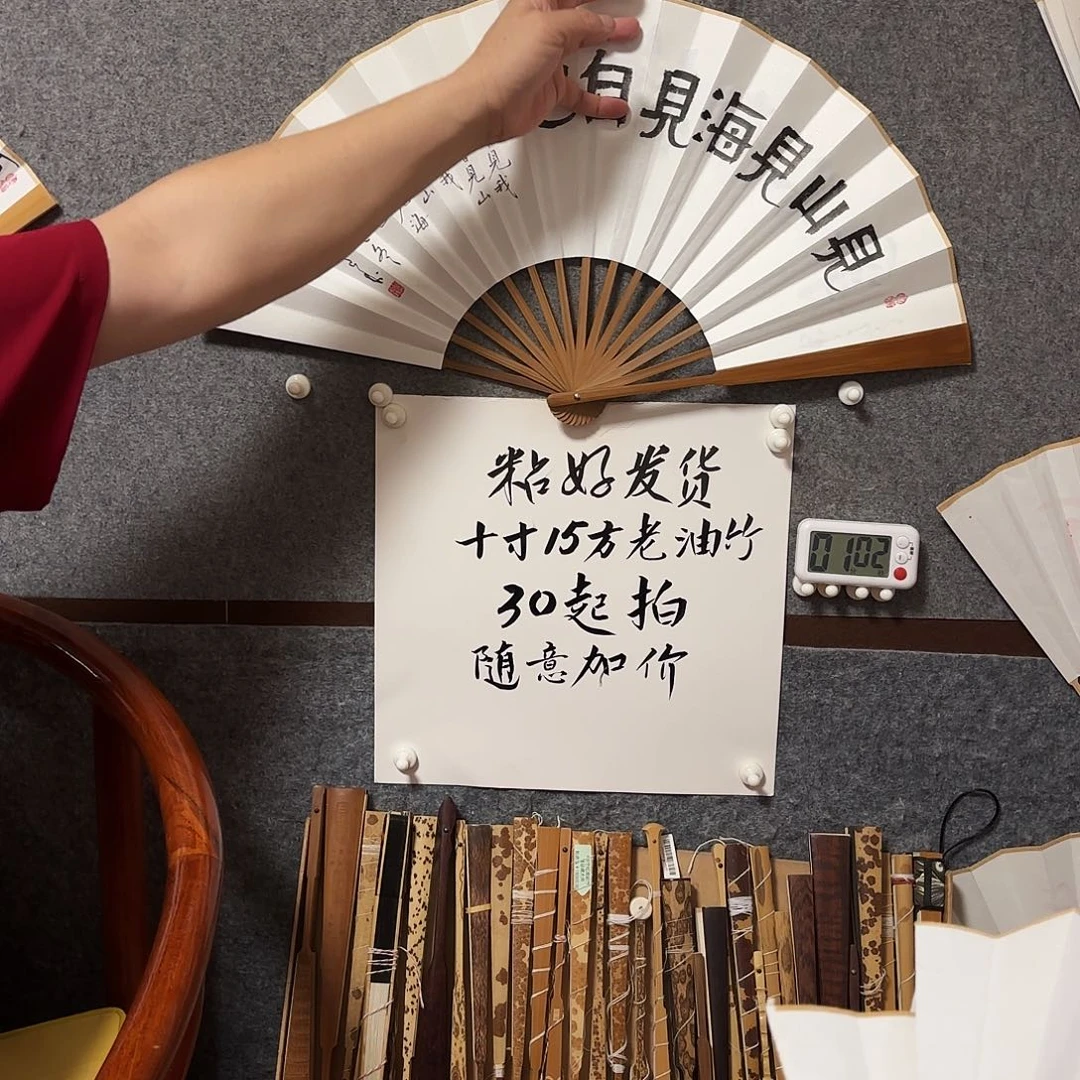 見山見海見自
粘好发货
十寸15方老油竹
30起拍
随意加价
01 02